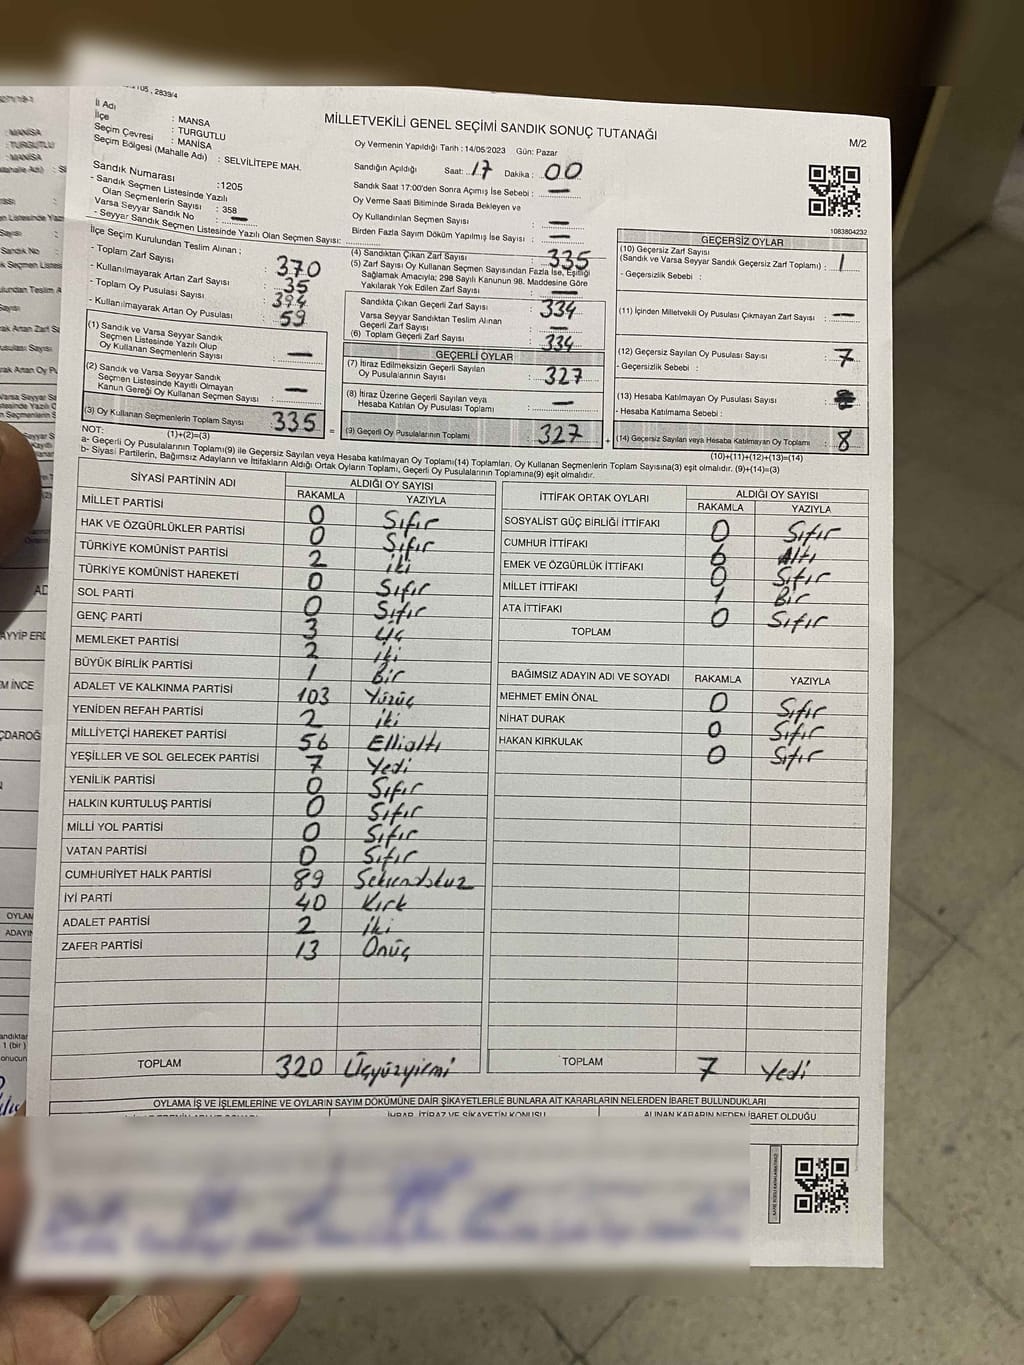 MİLLETVEKİLİ GENEL SEÇİMİ SANDIK SONUÇ TUTANAĞI
M/2
İl Adı : MANİSA
İlçe : TURGUTLU
Seçim Çevresi : MANİSA
Seçim Bölgesi (Mahalle Adı) : SELVİLİTEPE MAH.
Sandık Numarası :1205
- Sandık Seçmen Listesinde Yazılı
Olan Seçmenlerin Sayısı : 358
Varsa Seyyar Sandık No : —
- Seyyar Sandık Seçmen Listesinde Yazılı Olan Seçmen Sayısı:
Oy Vermenin Yapıldığı Tarih : 14/05/2023 Gün: Pazar
Sandığın Açıldığı Saat: 17 Dakika : 00
Sandık Saat 17:00'den Sonra Açımış İse Sebebi : —
Oy Verme Saati Bitiminde Sırada Bekleyen ve
Oy Kullandırılan Seçmen Sayısı : —
Birden Fazla Sayım Döküm Yapılmış İse Sayısı : —
1083804232
İlçe Seçim Kurulundan Teslim Alınan ;
- Toplam Zarf Sayısı : 370
- Kullanılmayarak Artan Zarf Sayısı : 35
- Toplam Oy Pusulası Sayısı : 394
- Kullanılmayarak Artan Oy Pusulası : 59
(1) Sandık ve Varsa Seyyar Sandık
Seçmen Listesinde Yazılı Olup
Oy Kullanan Seçmenlerin Sayısı : —
(2) Sandık ve Varsa Seyyar Sandık
Seçmen Listesinde Kayıtlı Olmayan
Kanun Gereği Oy Kullanan Seçmen Sayısı : —
(3) Oy Kullanan Seçmenlerin Toplam Sayısı : 335
(1)+(2)=(3)
(4) Sandıktan Çıkan Zarf Sayısı : 335
(5) Zarf Sayısı Oy Kullanan Seçmen Sayısından Fazla İse, Eşitliği
Sağlamak Amacıyla; 298 Sayılı Kanunun 98. Maddesine Göre
Yakılarak Yok Edilen Zarf Sayısı : —
Sandıkta Çıkan Geçerli Zarf Sayısı : 334
Varsa Seyyar Sandıktan Teslim Alınan
Geçerli Zarf Sayısı : —
(6) Toplam Geçerli Zarf Sayısı : 334
GEÇERLİ OYLAR
(7) İtiraz Edilmeksizin Geçerli Sayılan
Oy Pusulalarının Sayısı : 327
(8) İtiraz Üzerine Geçerli Sayılan veya
Hesaba Katılan Oy Pusulası Toplamı : —
= (9) Geçerli Oy Pusulalarının Toplamı : 327
GEÇERSİZ OYLAR
(10) Geçersiz Zarf Sayısı
(Sandık ve Varsa Seyyar Sandık Geçersiz Zarf Toplamı) : 1
- Geçersizlik Sebebi :
(11) İçinden Milletvekili Oy Pusulası Çıkmayan Zarf Sayısı : —
(12) Geçersiz Sayılan Oy Pusulası Sayısı : 7
- Geçersizlik Sebebi :
(13) Hesaba Katılmayan Oy Pusulası Sayısı :
- Hesaba Katılmama Sebebi :
+ (14) Geçersiz Sayılan veya Hesaba Katılmayan Oy Toplamı : 8
(10)+(11)+(12)+(13)=(14)
NOT:
a- Geçerli Oy Pusulalarının Toplamı(9) ile Geçersiz Sayılan veya Hesaba katılmayan Oy Toplamı(14) Toplamları, Oy Kullanan Seçmenlerin Toplam Sayısına(3) eşit olmalıdır. (9)+(14)=(3)
b- Siyasi Partilerin, Bağımsız Adayların ve İttifakların Aldığı Ortak Oyların Toplamı, Geçerli Oy Pusulalarının Toplamına(9) eşit olmalıdır.
SİYASİ PARTİNİN ADI ALDIĞI OY SAYISI
RAKAMLA YAZIYLA
MİLLET PARTİSİ 0 Sıfır
HAK VE ÖZGÜRLÜKLER PARTİSİ 0 Sıfır
TÜRKİYE KOMÜNİST PARTİSİ 2 iki
TÜRKİYE KOMÜNİST HAREKETİ 0 Sıfır
SOL PARTİ 0 Sıfır
GENÇ PARTİ 3 üç
MEMLEKET PARTİSİ 2 iki
BÜYÜK BİRLİK PARTİSİ 1 Bir
ADALET VE KALKINMA PARTİSİ 103 Yüzüç
YENİDEN REFAH PARTİSİ 2 iki
MİLLİYETÇİ HAREKET PARTİSİ 56 Ellialtı
YEŞİLLER VE SOL GELECEK PARTİSİ 7 Yedi
YENİLİK PARTİSİ 0 Sıfır
HALKIN KURTULUŞ PARTİSİ 0 Sıfır
MİLLİ YOL PARTİSİ 0 Sıfır
VATAN PARTİSİ 0 Sıfır
CUMHURİYET HALK PARTİSİ 89 Seksendokuz
İYİ PARTİ 40 Kırk
ADALET PARTİSİ 2 İki
ZAFER PARTİSİ 13 Onüç
TOPLAM 320 Üçyüzyirmi
İTTİFAK ORTAK OYLARI ALDIĞI OY SAYISI
RAKAMLA YAZIYLA
SOSYALİST GÜÇ BİRLİĞİ İTTİFAKI 0 Sıfır
CUMHUR İTTİFAKI 6 Altı
EMEK VE ÖZGÜRLÜK İTTİFAKI 0 Sıfır
MİLLET İTTİFAKI 1 Bir
ATA İTTİFAKI 0 Sıfır
TOPLAM
BAĞIMSIZ ADAYIN ADI VE SOYADI RAKAMLA YAZIYLA
MEHMET EMİN ÖNAL 0 Sıfır
NİHAT DURAK 0 Sıfır
HAKAN KIRKULAK 0 Sıfır
TOPLAM 7 Yedi
OYLAMA İŞ VE İŞLEMLERİNE VE OYLARIN SAYIM DÖKÜMÜNE DAİR ŞİKAYETLERLE BUNLARA AİT KARARLARIN NELERDEN İBARET BULUNDUKLARI
İHBAR, İTİRAZ VE ŞİKAYETİN KONUSU ALINAN KARARIN NEDEN İBARET OLDUĞU